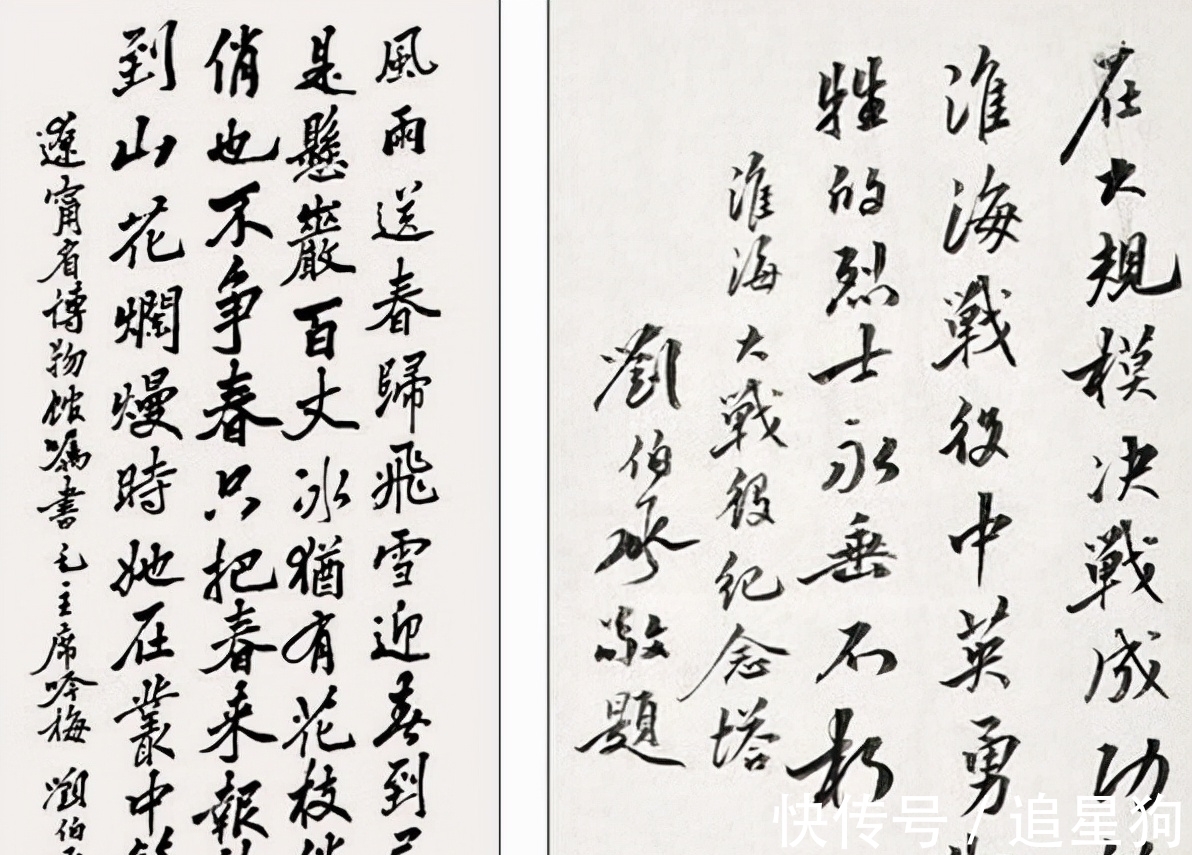 風雨送春歸飛雪迎春到
是懸巖百丈冰猶有花枝
俏也不争春只把春来報
到山花爛熳時她在叢中
遼甯省博物馆嘱書毛主席吟梅 劉伯
在大規模决戰成功
淮海戰役中英勇
牲的烈士永垂不朽
淮海大戰役纪念塔
劉伯承敬題
快传号 / 追星狗